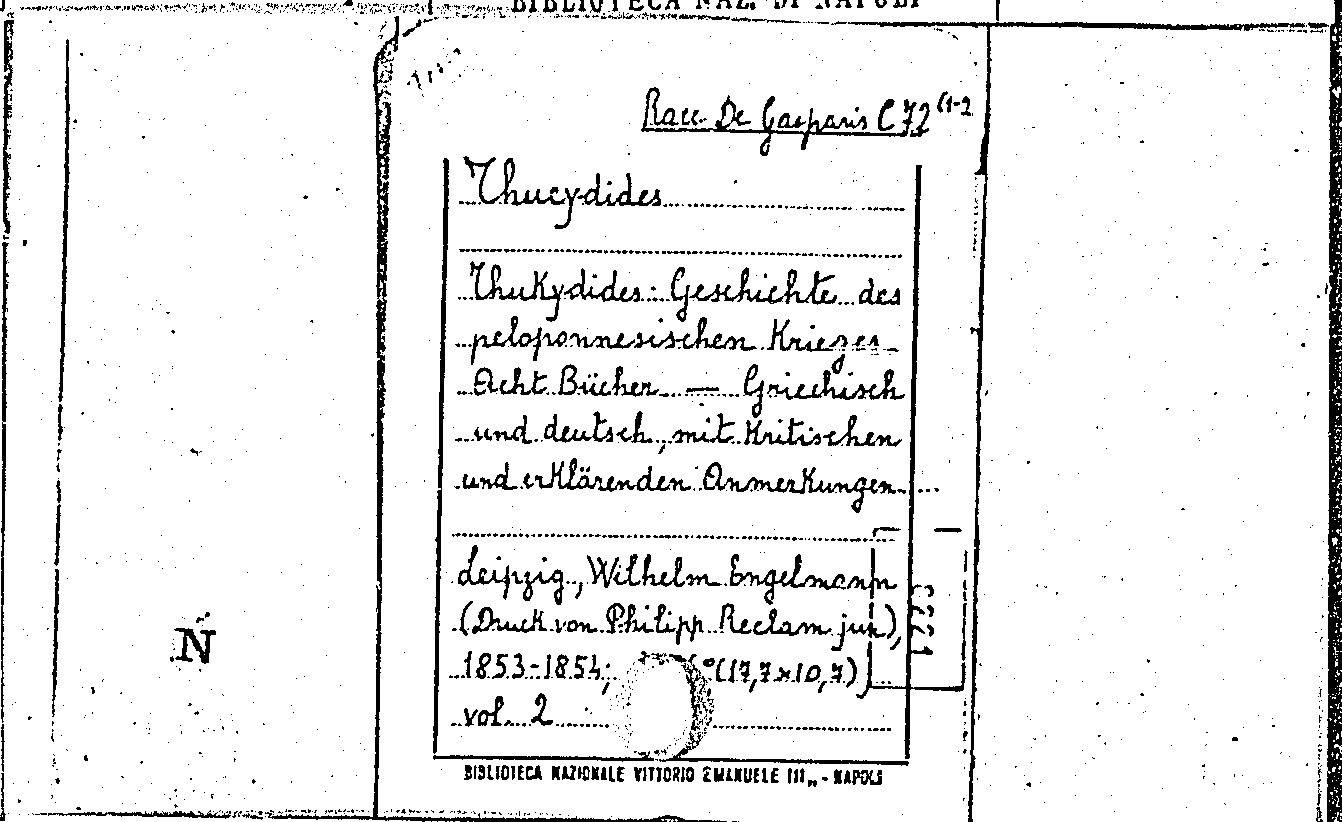 BIBLIOTECA NAZ. DI NAPOLI
Racc. De Gasparis C 72 (1-2
Thucydides
Thukydides: Geschichte des
peloponnesischen Krieges
Acht Bücher — Griechisch
und deutsch, mit kritischen
und erklärenden Anmerkungen...
Leipzig, Wilhelm Engelmann
(Druck von Philipp Reclam jun),
1853-1854; °(17,7x10,7)
vol. 2
N
BIBLIOTECA NAZIONALE VITTORIO EMANUELE III„ - NAPOLI